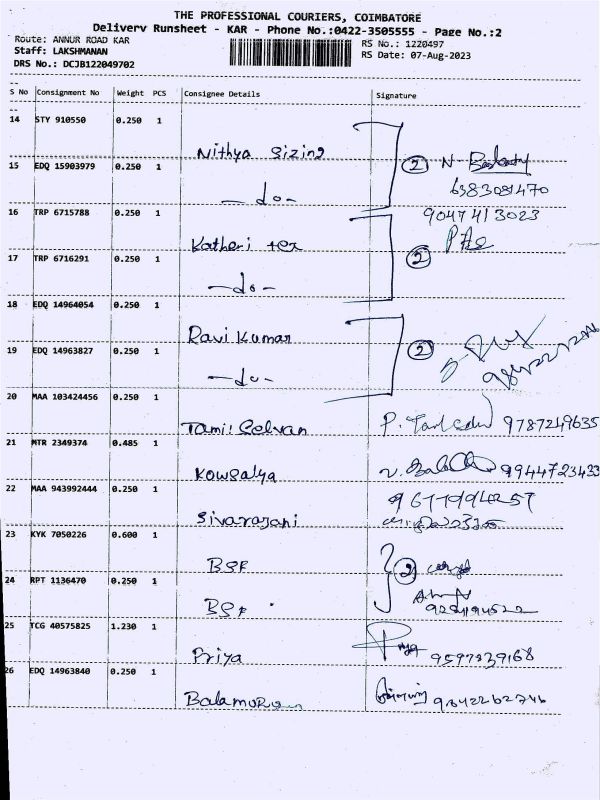 THE PROFESSIONAL COURIERS, COIMBATORE
Delivery Runsheet - KAR - Phone No.:0422-3505555 - Page No.:2
Route: ANNUR ROAD KAR
RS No.: 1220497
Staff: LAKSHMANAN
RS Date: 07-Aug-2023
DRS No.: DCJB122049702
S No Consignment No Weight PCS Consignee Details Signature
14 STY 910550 0.250 1
Nithya Sizing
15 EDQ 15903979 0.250 1
② N.
-do-
6383081470
16 TRP 6715788 0.250 1
9047413023
Katheri tex
17 TRP 6716291 0.250 1
②
-do-
18 EDQ 14964054 0.250 1
Ravi Kumar
19 EDQ 14963827 0.250 1
②
-do-
20 MAA 103424456 0.250 1
Tamil Selvan P. 9787249635
21 MTR 2349374 0.485 1
Kowsalya 9944723433
22 MAA 943992444 0.250 1
Sivaranjani
23 KYK 7050226 0.600 1
BSF ②
24 RPT 1136470 0.250 1
BSF
25 TCG 40575825 1.230 1
Priya 9597339168
26 EDQ 14963840 0.250 1
9842262746